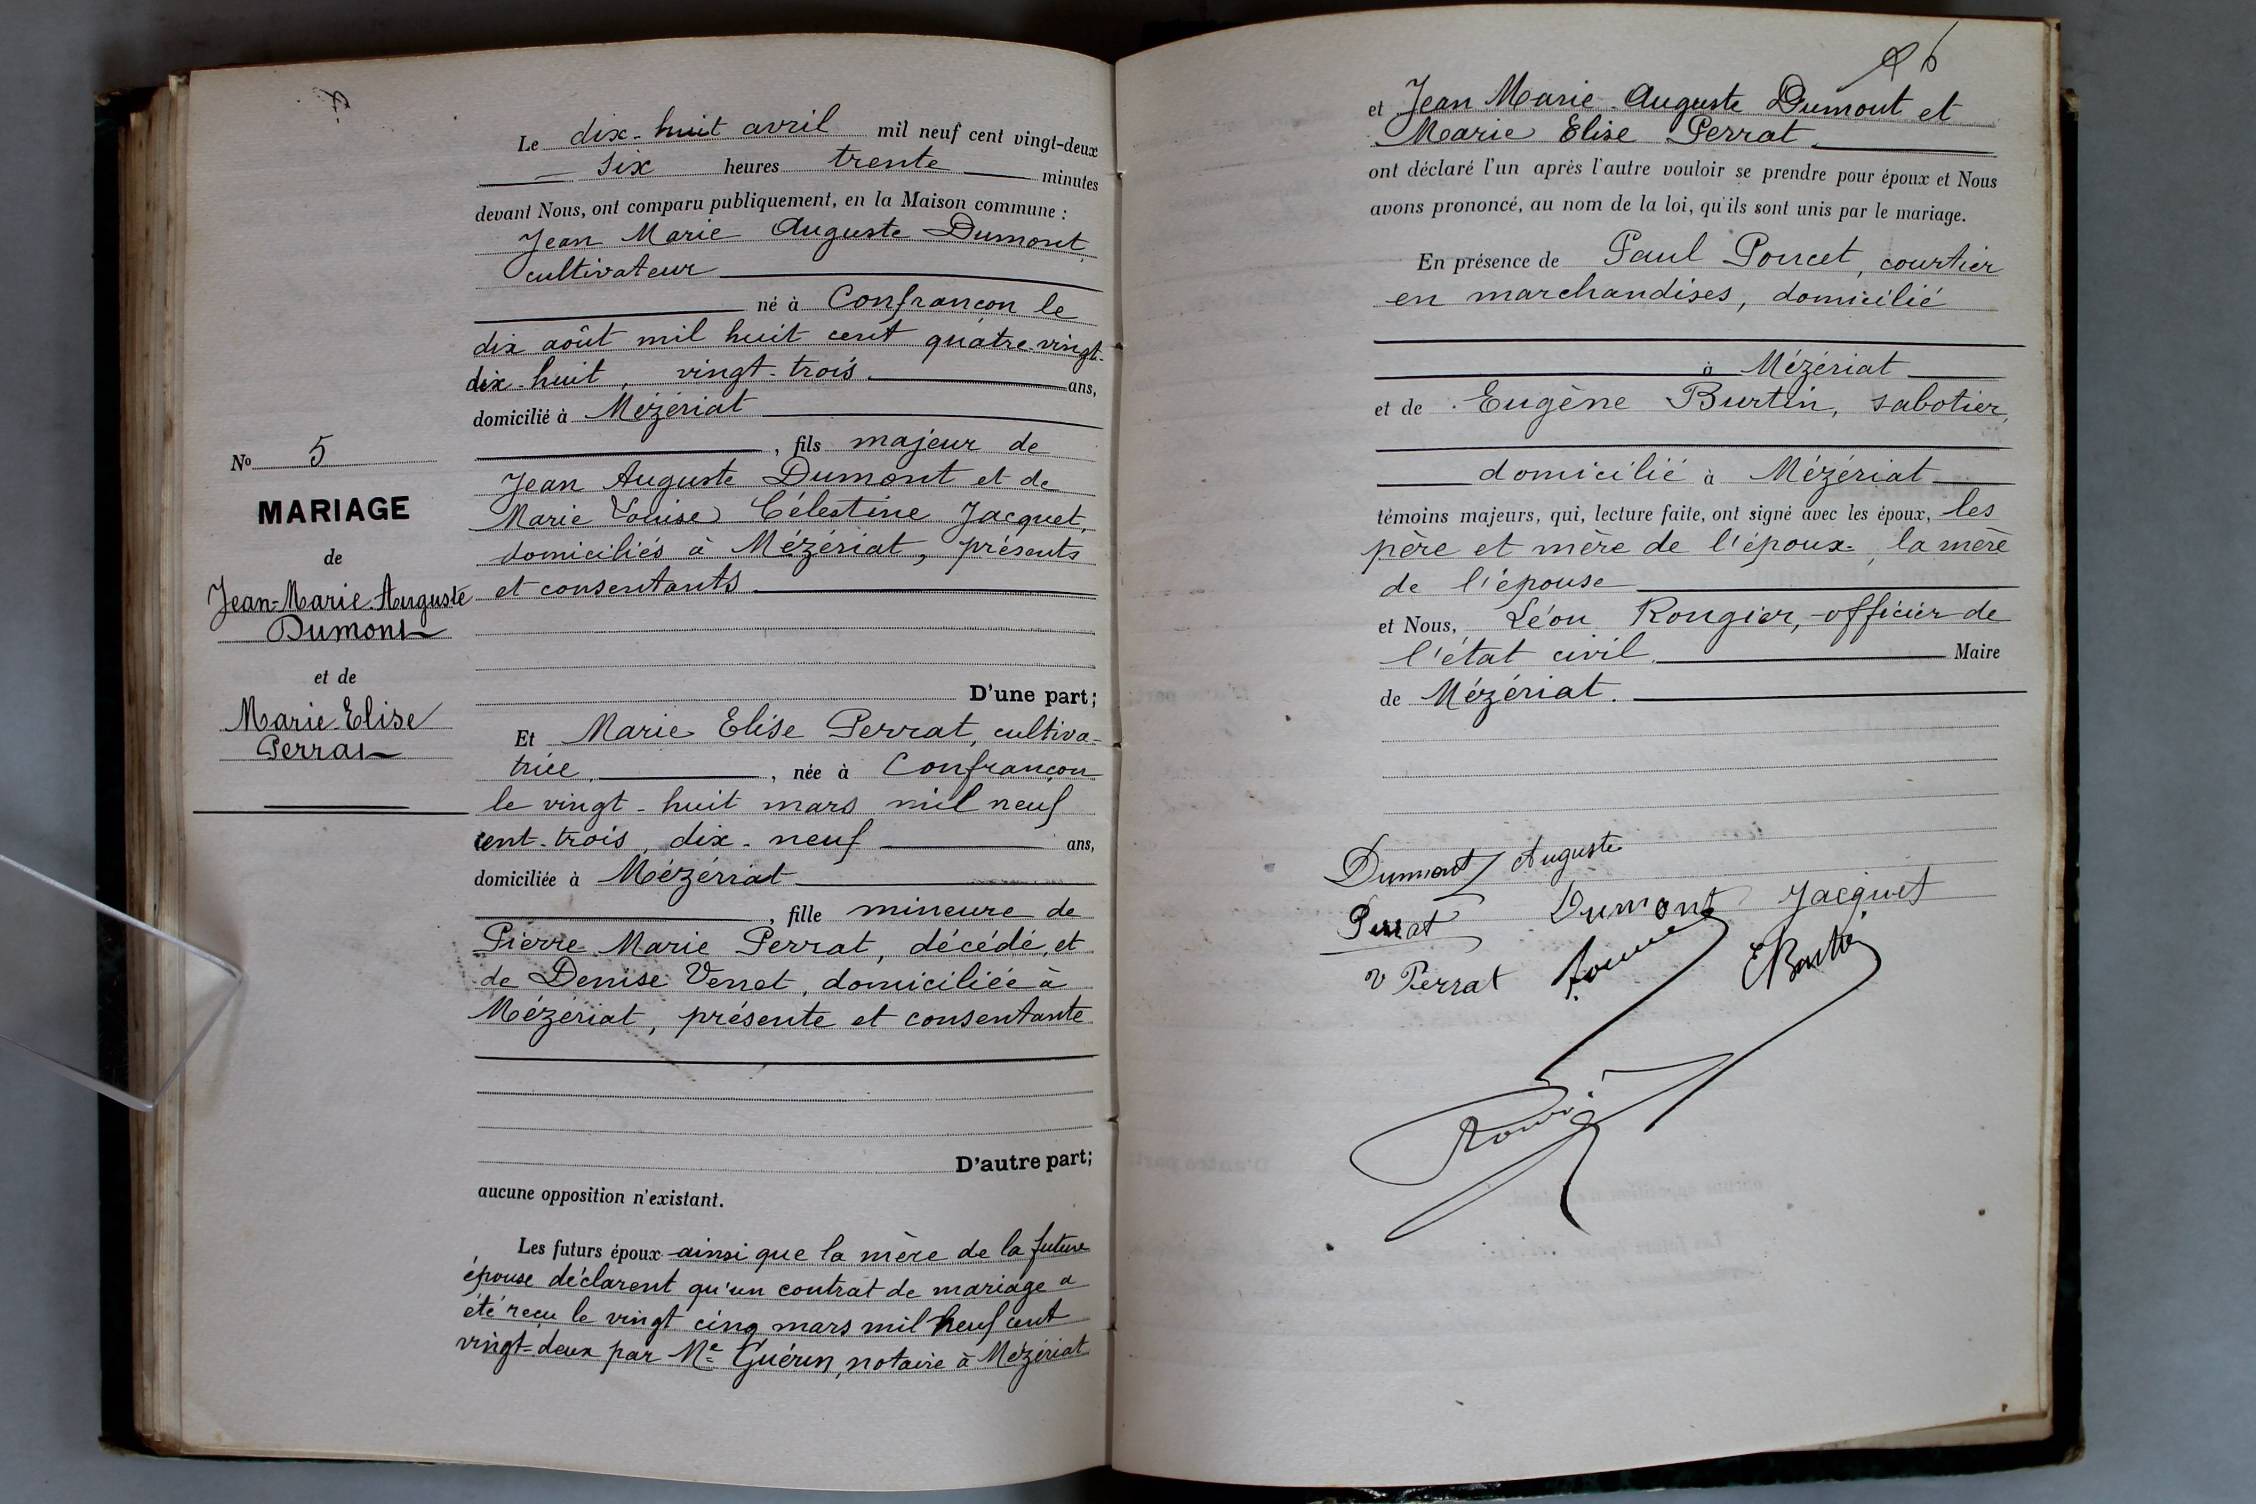 Le dix-huit avril mil neuf cent vingt-deux
six heures trente minutes
devant Nous, ont comparu publiquement, en la Maison commune :
Jean Marie Auguste Dumont,
cultivateur
né à Confrançon le
dix août mil huit cent quatre-vingt-
dix-huit, vingt-trois ans,
domicilié à Mézériat
, fils majeur de
Jean Auguste Dumont et de
Marie Louise Célestine Jacquet,
domiciliés à Mézériat, présents
et consentants
D'une part;
Et Marie Elise Perrat, cultiva-
trice, née à Confrançon
le vingt-huit mars mil neuf
cent-trois, dix-neuf ans,
domiciliée à Mézériat
, fille mineure de
Pierre Marie Perrat, décédé, et
de Denise Venet, domiciliée à
Mézériat, présente et consentante
D'autre part;
aucune opposition n'existant.
Les futurs époux ainsi que la mère de la future
épouse déclarent qu'un contrat de mariage a
été reçu le vingt cinq mars mil neuf cent
vingt-deux par Me Guérin, notaire à Mézériat
No 5
MARIAGE
de
Jean-Marie-Auguste
Dumont
et de
Marie Elise
Perrat
et Jean Marie-Auguste Dumont et
Marie Elise Perrat.
ont déclaré l'un après l'autre vouloir se prendre pour époux et Nous
avons prononcé, au nom de la loi, qu'ils sont unis par le mariage.
En présence de Paul Poncet, courtier
en marchandises, domicilié
à Mézériat
et de Eugène Burtin, sabotier,
domicilié à Mézériat
témoins majeurs, qui, lecture faite, ont signé avec les époux, les
père et mère de l'époux, la mère
de l'épouse
et Nous, Léon Rougier, officier de
l'état civil Maire
de Mézériat.
Dumont Auguste
Perrat Dumont Jacquet
v Perrat Poncet EBurtin